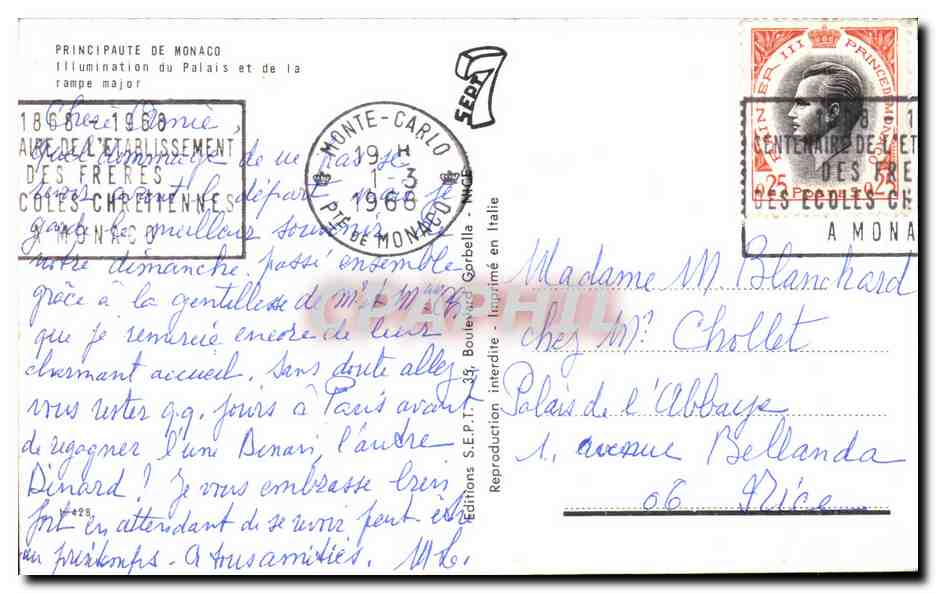 PRINCIPAUTE DE MONACO
Illumination du Palais et de la
rampe major
1868 - 1968
AIRE DE L'ETABLISSEMENT
DES FRERES
COLES CHRETIENNES
A MONACO
MONTE-CARLO
19 H
1 - 3
1968
PTÉ DE MONACO
SEPT 7
RAINIER III PRINCE DE MONACO
0,25 POSTES 0,25
CENTENAIRE DE L'ET
DES FRE
DES ECOLES CH
A MONA
Chère Annie,
Quel dommage de ne pas se
revoir avant le départ mais je
garde le meilleur souvenir de
notre dimanche passé ensemble
grâce à la gentillesse de Mr et Mme
que je remercie encore de leur
charmant accueil. Sans doute allez
vous rester qq. jours à Paris avant
de regagner l'une Dinan, l'autre
Dinard! Je vous embrasse bien
fort en attendant de se revoir peut être
au printemps. A tous amitiés.
428
CPAPHIL
Editions S.E.P.T. 39, Boulevard Gorbella - NICE
Reproduction interdite - Imprimé en Italie
Madame M Blanchard
chez Mr Chollet
Palais de l'Abbaye
1, avenue Bellanda
06 Nice